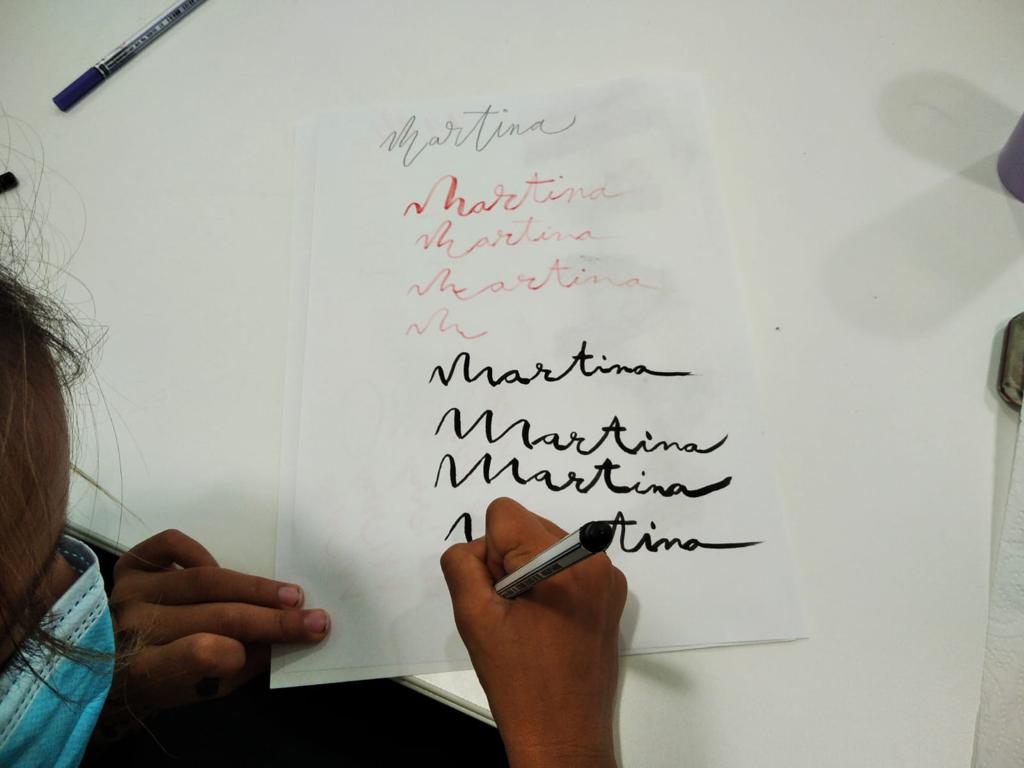 Martina
Martina
Martina
Martina
M
Martina
Martina
Martina
tina